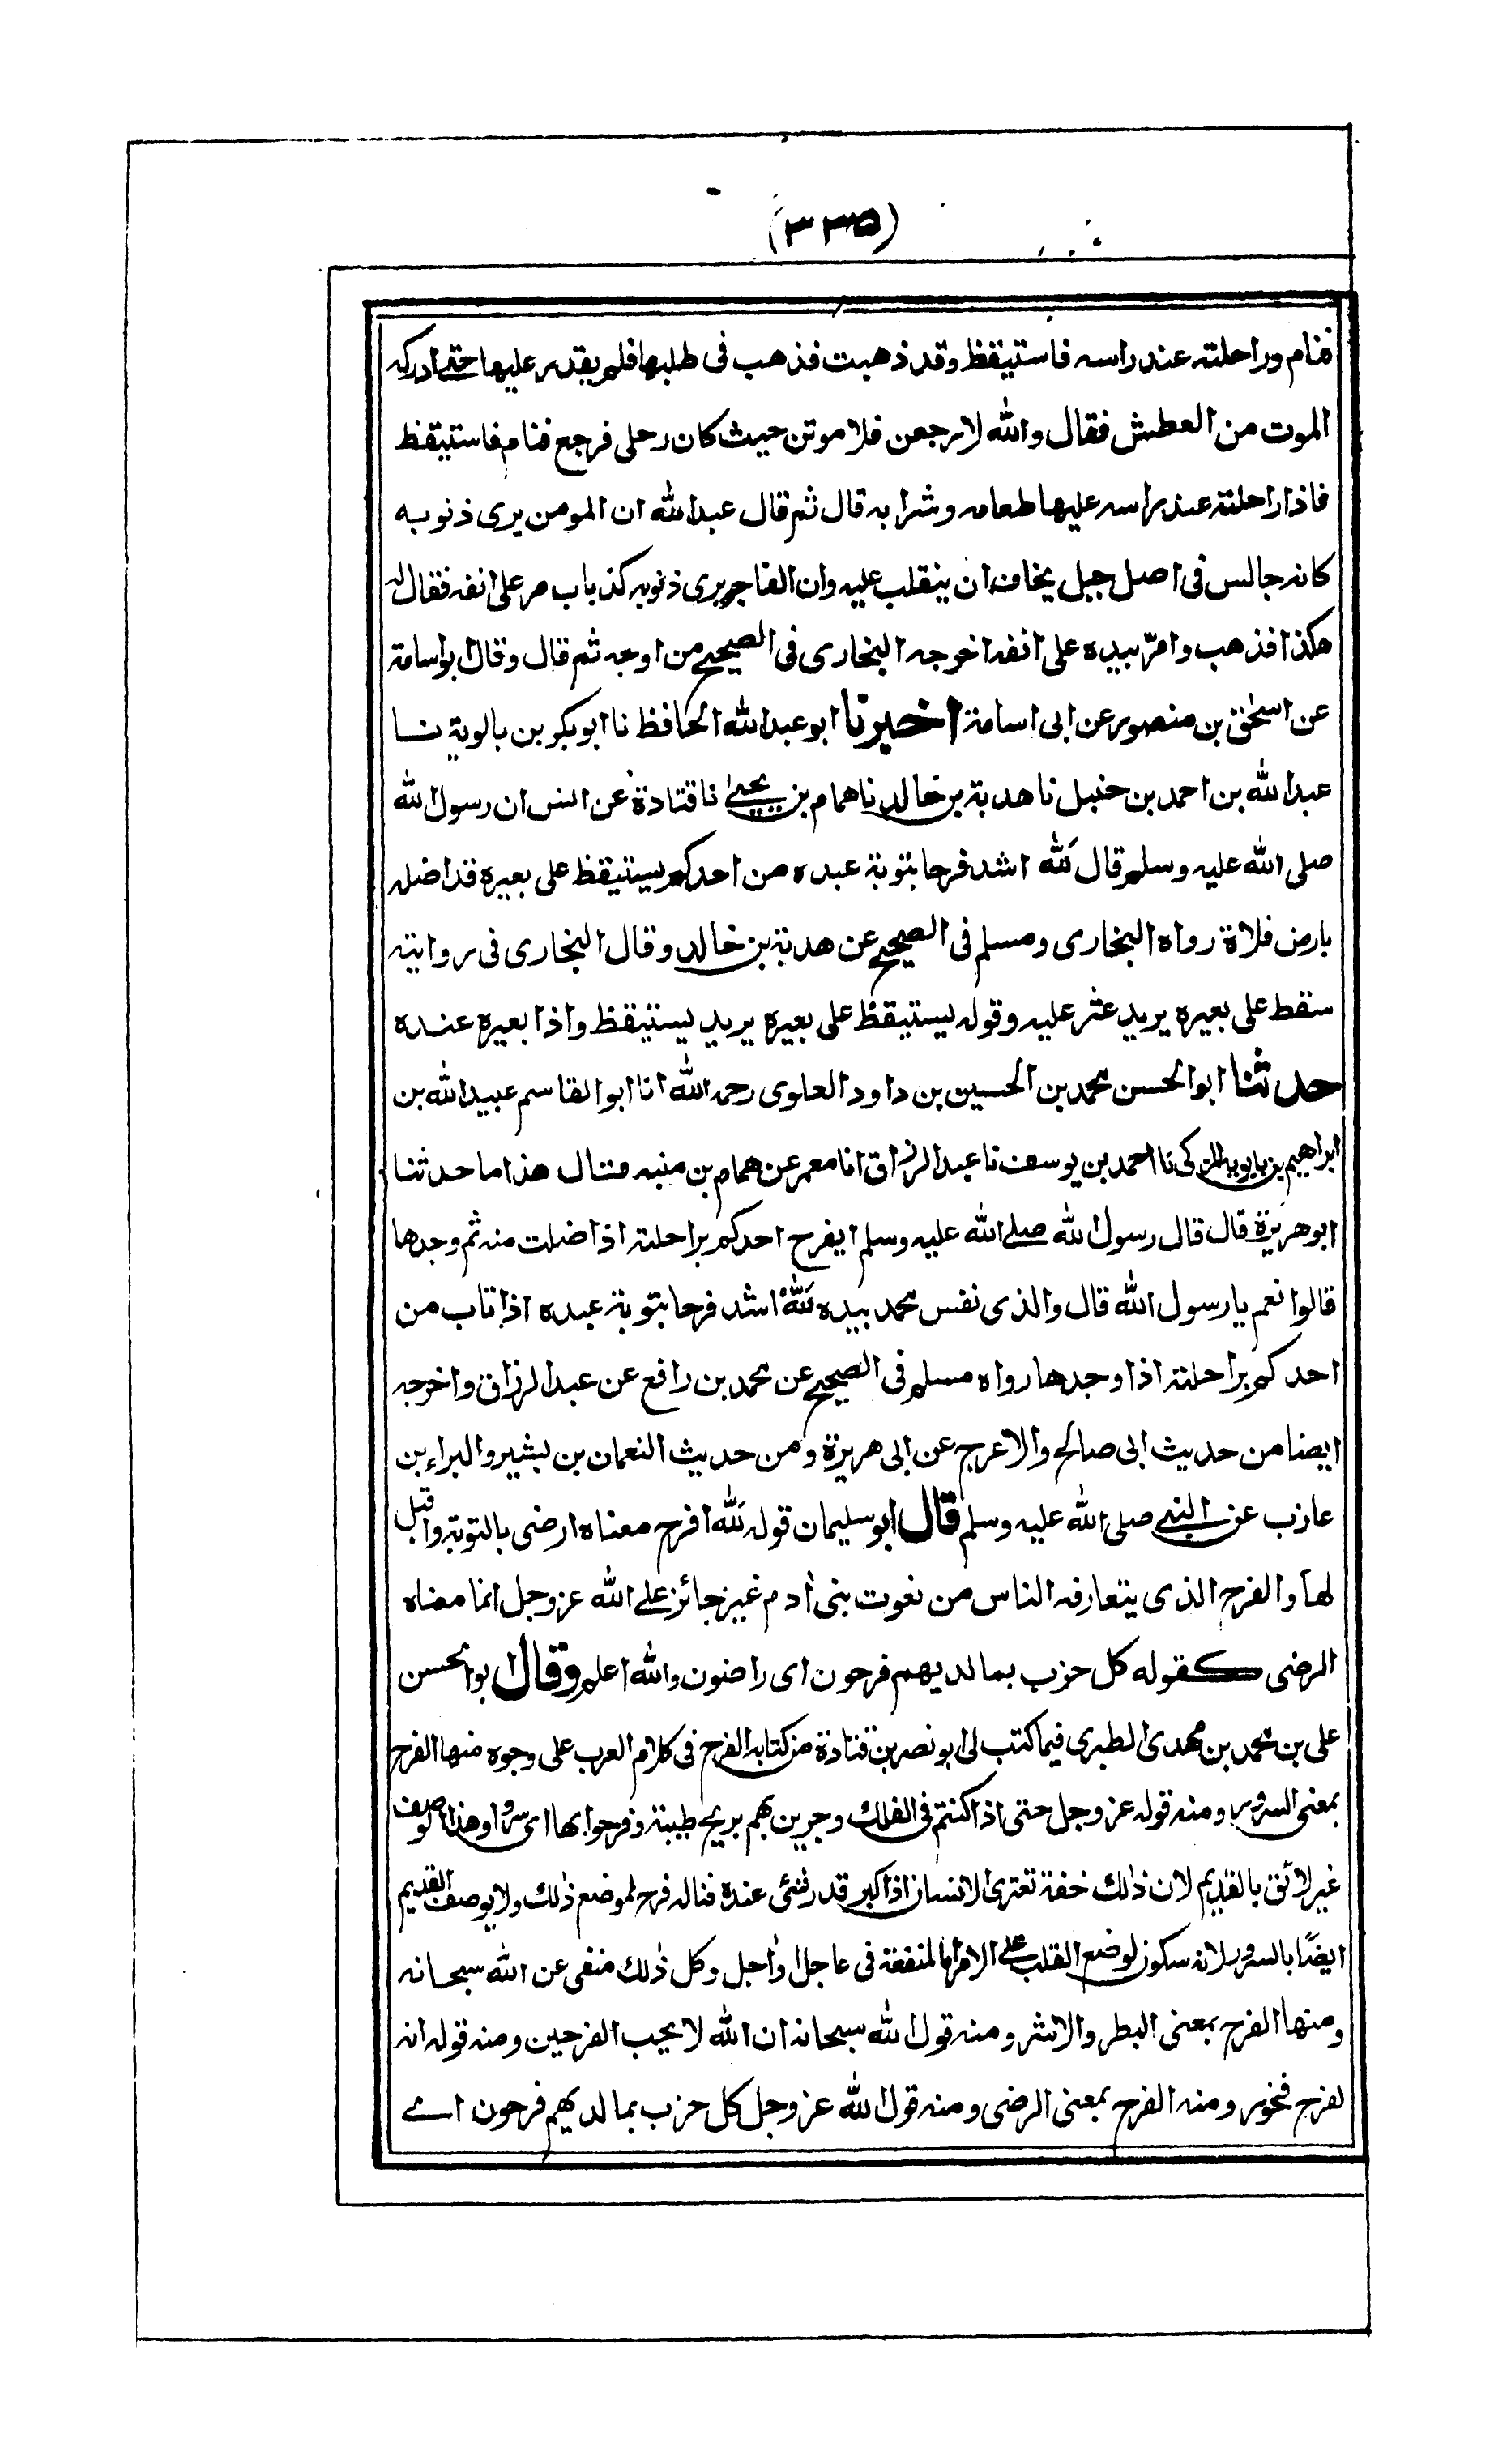 (٣٣٥)
فنام وراحلته عند راسه فاستيقظ وقد ذهبت فذهب فى طلبها فلم يقدر عليها حتى ادركه
الموت من العطش فقال والله لارجعن فلاموتن حيث كان رحلى فرجع فنام فاستيقظ
فاذا راحلته عند راسه عليها طعامه وشرابه قال ثم قال عبدالله ان المومن يرى ذنوبه
كانه جالس فى اصل جبل يخاف ان ينقلب عليه وان الفاجر يرى ذنوبه كذباب مر على انفه فقال له
هكذا فذهب وامرّ بيده على انفه اخرجه البخارى فى الصحيح من اوجه ثم قال وقال ابواسامة
عن اسحٰق بن منصور عن ابى اسامة اخبرنا ابو عبدالله الحافظ نا ابوبكر بن بالوية نا
عبدالله بن احمد بن حنبل نا هدبة بن خالد نا همام بن يحيىٰ نا قتادة عن انس ان رسول الله
صلى الله عليه وسلم قال لَلّٰه اشد فرحا بتوبة عبده من احدكم يستيقظ على بعيره قد اضله
بارض فلاة رواه البخارى ومسلم فى الصحيح عن هدبة بن خالد وقال البخارى فى روايته
سقط على بعيره يريد عثر عليه وقوله يستيقظ على بعيره يريد يستيقظ واذا بعيره عنده
حدثنا ابو الحسن محمد بن الحسين بن داود العلوى رحمه الله انا ابو القاسم عبيدالله بن
ابراهيم بن بابويه المزكى نا احمد بن يوسف نا عبد الرزاق انا معمر عن همام بن منبه قال هذا ما حدثنا
ابوهريرة قال قال رسول الله صلى الله عليه وسلم ايفرح احدكم براحلته اذا ضلت منه ثم وجدها
قالوا نعم يا رسول الله قال والذى نفس محمد بيده لَلّٰهُ اشد فرحا بتوبة عبده اذا تاب من
احدكم براحلته اذا وجدها رواه مسلم فى الصحيح عن محمد بن رافع عن عبد الرزاق واخرجه
ايضا من حديث ابى صالح والاعرج عن ابى هريرة ومن حديث النعمان بن بشير والبراء بن
عازب عن النبى صلى الله عليه وسلم قال ابو سليمان قوله لَلّٰه افرح معناه ارضى بالتوبة واقبل
لها والفرح الذى يتعارفه الناس من نعوت بنى أدم غير جائز على الله عز وجل انما معناه
الرضى كقوله كل حزب بما لديهم فرحون اى راضون والله اعلم وقال ابو الحسن
على بن محمد بن مهدى الطبرى فيما كتب لى ابو نصر بن قتادة من كتابه الفرح فى كلام العرب على وجوه منها الفرح
بمعنى السرور ومنه قوله عز وجل حتى اذا كنتم فى الفلك وجرين بهم بريح طيبة وفرحوا بها اى سروا وهذا الوصف
غير لائق بالقديم لان ذٰلك خفة تعترى الانسان اذا كبر قدر شئى عنده فناله فرح لموضع ذٰلك ولا يوصف القديم
ايضًا بالسرور لانه سكون لوضع القلب على الامر اما لمنفعة فى عاجل او أجل وكل ذٰلك منفى عن الله سبحانه
ومنها الفرح بمعنى البطر والاشر ومنه قول الله سبحانه ان الله لا يحب الفرحين ومنه قوله انه
لفرح فخور ومنه الفرح بمعنى الرضى ومنه قول الله عز وجل كل حزب بما لديهم فرحون اے